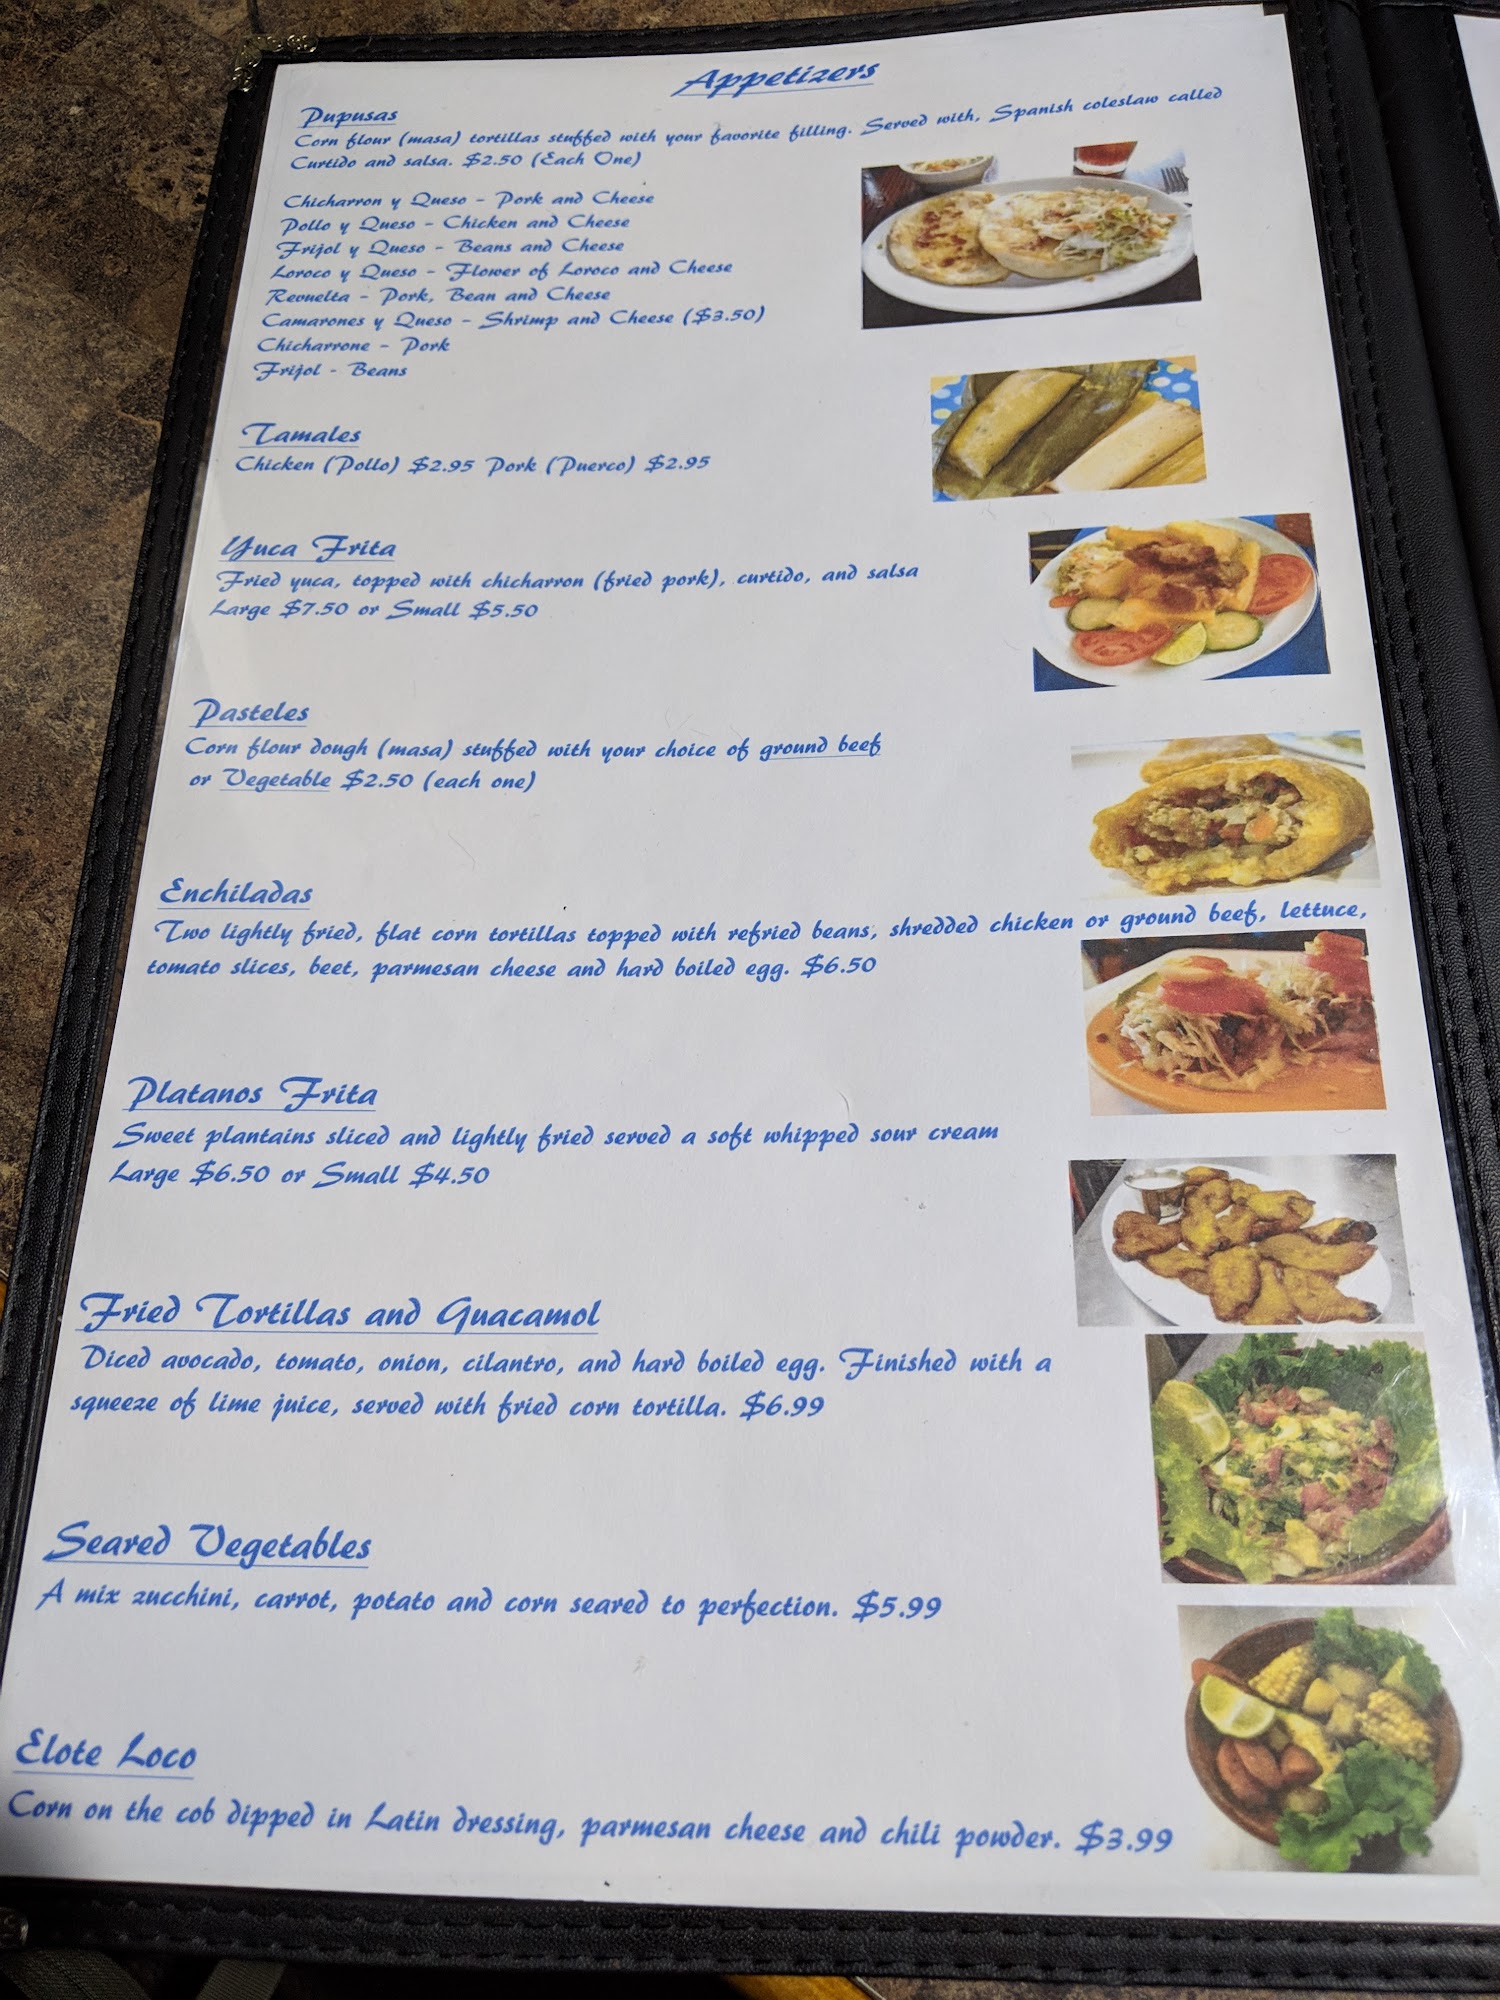 Appetizers
Pupusas
Corn flour (masa) tortillas stuffed with your favorite filling. Served with, Spanish coleslaw called
Curtido and salsa. $2.50 (Each One)
Chicharron y Queso - Pork and Cheese
Pollo y Queso - Chicken and Cheese
Frijol y Queso - Beans and Cheese
Loroco y Queso - Flower of Loroco and Cheese
Revuelta - Pork, Bean and Cheese
Camarones y Queso - Shrimp and Cheese ($3.50)
Chicharrone - Pork
Frijol - Beans
Tamales
Chicken (Pollo) $2.95 Pork (Puerco) $2.95
Yuca Frita
Fried yuca, topped with chicharron (fried pork), curtido, and salsa
Large $7.50 or Small $5.50
Pasteles
Corn flour dough (masa) stuffed with your choice of ground beef
or Vegetable $2.50 (each one)
Enchiladas
Two lightly fried, flat corn tortillas topped with refried beans, shredded chicken or ground beef, lettuce,
tomato slices, beet, parmesan cheese and hard boiled egg. $6.50
Platanos Frita
Sweet plantains sliced and lightly fried served a soft whipped sour cream
Large $6.50 or Small $4.50
Fried Tortillas and Guacamol
Diced avocado, tomato, onion, cilantro, and hard boiled egg. Finished with a
squeeze of lime juice, served with fried corn tortilla. $6.99
Seared Vegetables
A mix zucchini, carrot, potato and corn seared to perfection. $5.99
Elote Loco
Corn on the cob dipped in Latin dressing, parmesan cheese and chili powder. $3.99